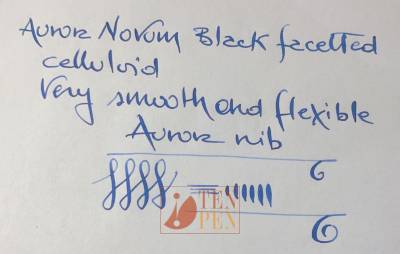 Auror Novum Black facetted
celluloid
Very smooth and flexible
Auror nib
TEN
PEN